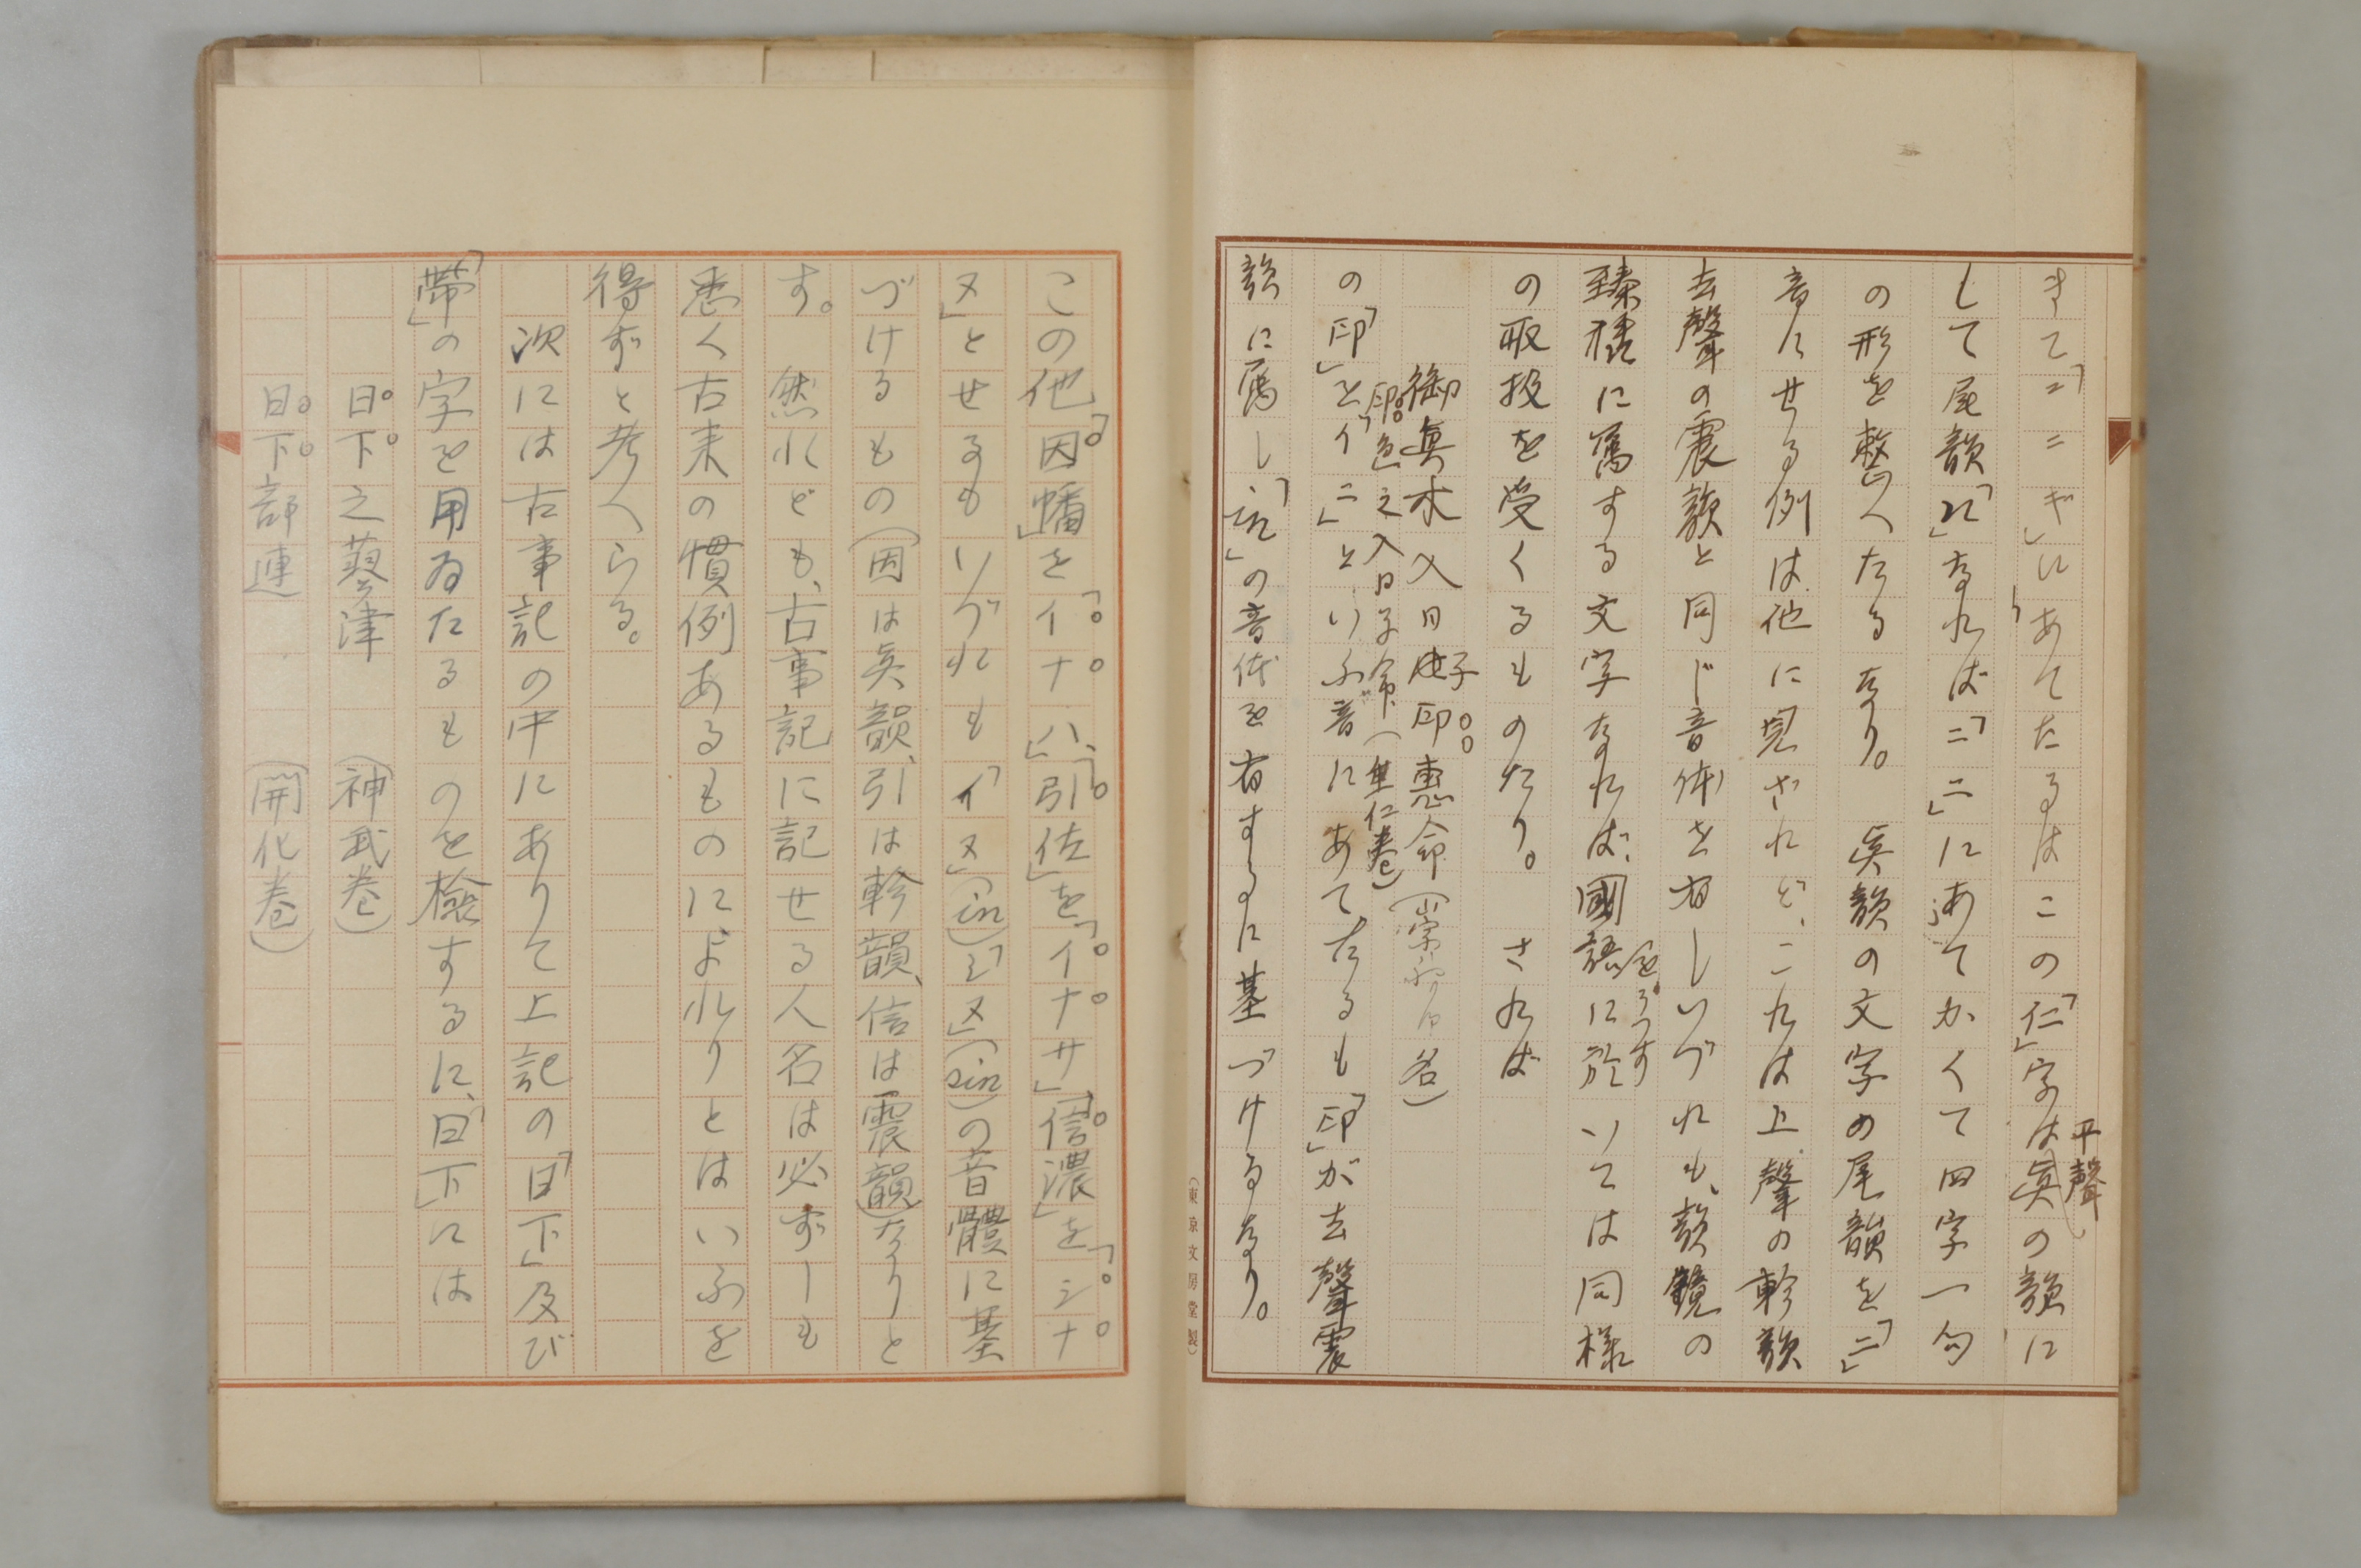 きて「ニニギ」にあてたるはこの「仁」字は眞の韻に
平聲
して尾韻「n」なれば「ニ」にあてかくて四字一句
の形を整へたるなり。眞韻の文字の尾韻を「ニ」
音にせる例は他に見ざれど、これは上聲の軫韻
去聲の震韻と同じ音体を有しいづれも、韻鏡の
臻攝に属する文字なれば、國語に於いては同樣
をうつす
の取扱を受くるものなり。されば
御眞木入日子印惠命(崇神
印色之入日子命(垂仁卷)
の「印」を「イニ」といふ音にあてたるも「印」が去聲震
韻に属し「in」の音体を有するに基づけるなり。
(東京文房堂製)
この他「因幡」を「イナハ」、「引佐」を「イナサ」「信濃」を「シナ
ヌ」とせるもいづれも「イヌ」(in)「シヌ」(sin)の音體に基
づけるもの(因は眞韻、引は軫韻、信は震韻)なりと
す。然れども、古事記に記せる人名は必ずしも
悉く古来の慣例あるものによれりとはいふを
得ずと考へらる。
次には古事記の中にありて上記の「日下」及び
「帶」の字を用ゐたるものを檢するに、「日下」には
日下之蓼津(神武卷)
日下部連(開化卷)